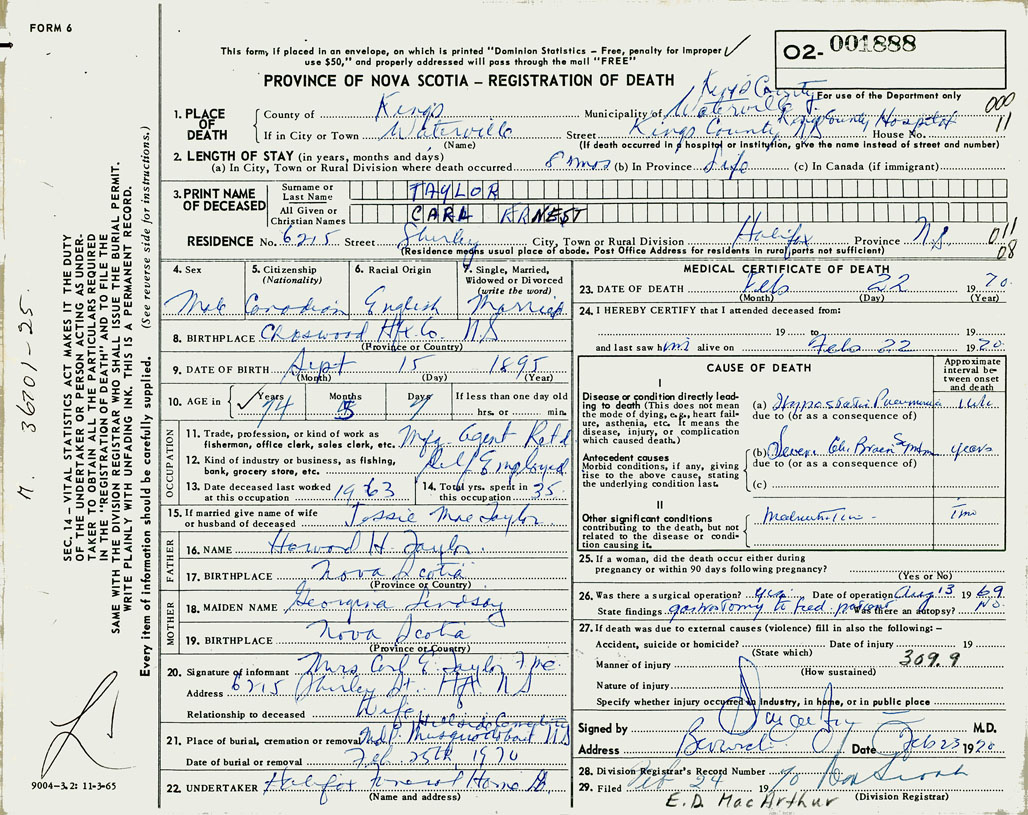 FORM 6
This form, if placed in an envelope, on which is printed "Dominion Statistics – Free, penalty for improper
use $50," and properly addressed will pass through the mail "FREE"
O2- 001888
PROVINCE OF NOVA SCOTIA – REGISTRATION OF DEATH
For use of the Department only
000
11
1. PLACE OF DEATH
County of Kings
Municipality of Kings County Waterville
If in City or Town Waterville
(Name)
Street Kings County Hospital House No.
(If death occurred in a hospital or institution, give the name instead of street and number)
2. LENGTH OF STAY (in years, months and days)
(a) In City, Town or Rural Division where death occurred 8 mos (b) In Province Life (c) In Canada (if immigrant)
3. PRINT NAME OF DECEASED
Surname or Last Name TAYLOR
All Given or Christian Names CARL ERNEST
RESIDENCE No. 6215 Street Shirley City, Town or Rural Division Halifax Province N.S
(Residence means usual place of abode. Post Office Address for residents in rural parts not sufficient)
011
08
4. Sex
Male
5. Citizenship
(Nationality)
Canadian
6. Racial Origin
English
7. Single, Married, Widowed or Divorced
(write the word)
Married
8. BIRTHPLACE Chaswood Hfx Co. N.S
(Province or Country)
9. DATE OF BIRTH Sept 15 1895
(Month) (Day) (Year)
10. AGE in
Years 74
Months 5
Days 7
If less than one day old
hrs. or min.
OCCUPATION
11. Trade, profession, or kind of work as fisherman, office clerk, sales clerk, etc. Mfg. Agent Ret'd
12. Kind of industry or business, as fishing, bank, grocery store, etc. Self Employed
13. Date deceased last worked at this occupation 1963
14. Total yrs. spent in this occupation 35
15. If married give name of wife or husband of deceased Jessie Mae Taylor
FATHER
16. NAME Howard H. Taylor
17. BIRTHPLACE Nova Scotia
(Province or Country)
MOTHER
18. MAIDEN NAME Georgina Lindsay
19. BIRTHPLACE Nova Scotia
(Province or Country)
20. Signature of informant Mrs Carl E. Taylor
Address 6215 Shirley St. Hfx N S
Relationship to deceased Wife
21. Place of burial, cremation or removal Hillside Cemetery Mid. Musquodoboit N S
Date of burial or removal Feb. 25th 1970
22. UNDERTAKER Halifax Funeral Home
(Name and address)
MEDICAL CERTIFICATE OF DEATH
23. DATE OF DEATH Feb 22 1970
(Month) (Day) (Year)
24. I HEREBY CERTIFY that I attended deceased from:
19 to 19
and last saw him alive on Feb 22 1970
CAUSE OF DEATH
Approximate interval between onset and death
I
Disease or condition directly leading to death (This does not mean the mode of dying, e.g., heart failure, asthenia, etc. It means the disease, injury, or complication which caused death.)
(a) Hypostatic Pneumonia 1 wk
due to (or as a consequence of)
Antecedent causes
Morbid conditions, if any, giving rise to the above cause, stating the underlying condition last.
(b) Severe Chr Brain Syndrom years
due to (or as a consequence of)
(c)
II
Other significant conditions
contributing to the death, but not related to the disease or condition causing it.
Malnutrition
25. If a woman, did the death occur either during pregnancy or within 90 days following pregnancy?
(Yes or No)
26. Was there a surgical operation? yes Date of operation Aug 13 1969
State findings gastrostomy to feed patient Was there an autopsy? No.
27. If death was due to external causes (violence) fill in also the following: –
Accident, suicide or homicide? Date of injury 19
(State which)
Manner of injury 309.9
(How sustained)
Nature of injury
Specify whether injury occurred in Industry, in home, or in public place
Signed by M.D.
Address Berwick Date Feb 23 1970
28. Division Registrar's Record Number
29. Filed Feb 24 1970
(Division Registrar)
E.D. MacArthur
SEC. 14 – VITAL STATISTICS ACT MAKES IT THE DUTY
OF THE UNDERTAKER OR PERSON ACTING AS UNDER-
TAKER TO OBTAIN ALL THE PARTICULARS REQUIRED
IN THE "REGISTRATION OF DEATH" AND TO FILE THE
SAME WITH THE DIVISION REGISTRAR WHO SHALL ISSUE THE BURIAL PERMIT.
WRITE PLAINLY WITH UNFADING INK. THIS IS A PERMANENT RECORD.
Every item of information should be carefully supplied. (See reverse side for instructions.)
M. 36701-25.
9004-3.2: 11-3-65